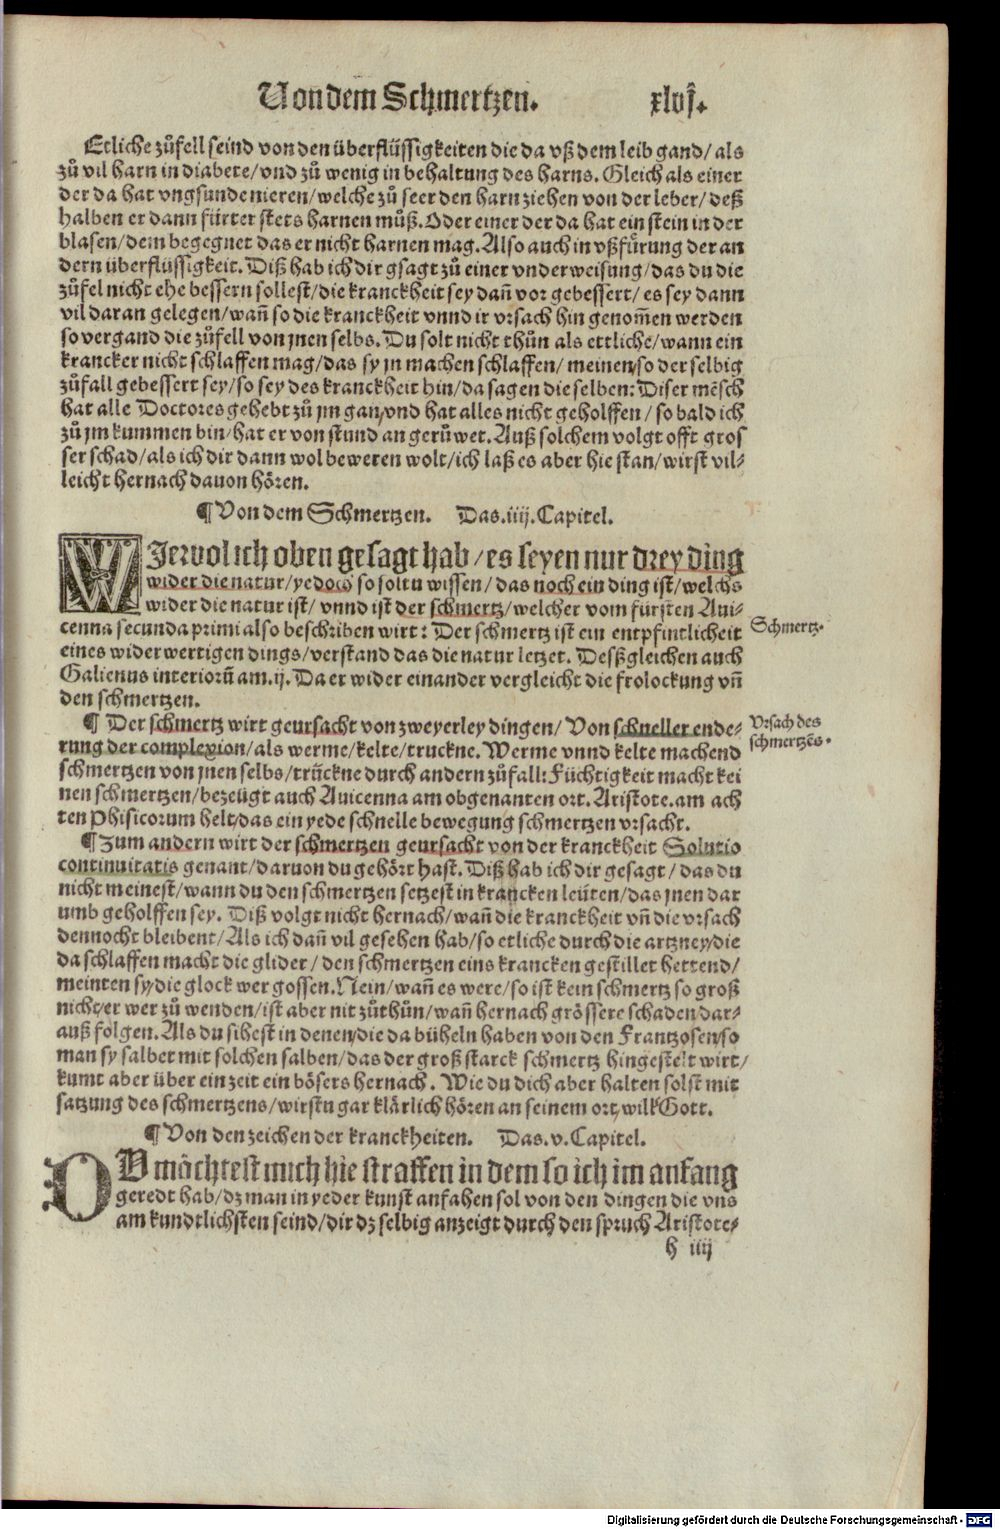 Von dem Schmertzen. xlvj.
Etliche zůfell seind von den überflüssigkeiten die da vß dem leib gand/ als
zů vil harn in diabete/ vnd zů wenig in behaltung des harns. Gleich als einer
der da hat vngsunde nieren/ welche zů seer den harn ziehen von der leber/ deß
halben er dann fürter stets harnen můß. Oder einer der da hat ein stein in der
blasen/ dem begegnet das er nicht harnen mag. Also auch in vßfůrung der an
dern überflüssigkeit. Diß hab ich dir gsagt zů einer vnderweisung/ das du die
zůfel nicht ehe bessern sollest/ die kranckheit sey dañ vor gebessert/ es sey dann
vil daran gelegen/ wañ so die kranckheit vnnd ir vrsach hin genom̃en werden
so vergand die zůfell von jnen selbs. Du solt nicht thůn als ettliche/ wann ein
krancker nicht schlaffen mag/ das sy jn machen schlaffen/ meinen/ so der selbig
zůfall gebessert sey/ so sey des kranckheit hin/ da sagen die selben: Diser mẽsch
hat alle Doctores gehebt zů jm gan/ vnd hat alles nicht geholffen/ so bald ich
zů jm kummen bin/ hat er von stund an gerůwet. Auß solchem volgt offt gros
ser schad/ als ich dir dann wol beweren wolt/ ich laß es aber hie stan/ wirst vil-
leicht hernach dauon hören.
¶ Von dem Schmertzen. Das .iiij. Capitel.
WJewol ich oben gesagt hab/ es seyen nur drey ding
wider die natur/ yedoch so soltu wissen/ das noch ein ding ist/ welchs
wider die natur ist/ vnnd ist der schmertz/ welcher vom fürsten Aui-
cenna secunda primi also beschriben wirt: Der schmertz ist ein entpfintlicheit
Schmertz.
eines widerwertigen dings/ verstand das die natur letzet. Desßgleichen auch
Galienus interiorũ am .ij. Da er wider einander vergleicht die frolockung vñ
den schmertzen.
¶ Der schmertz wirt geursacht von zweyerley dingen/ Von schneller ende-
Vrsach des
rung der complexion/ als werme/ kelte/ truckne. Werme vnnd kelte machend
schmertzẽs.
schmertzen von jnen selbs/ trückne durch andern zůfall: Füchtigkeit macht kei
nen schmertzen/ bezeügt auch Auicenna am obgenanten ort. Aristote. am ach
ten Phisicorum helt/ das ein yede schnelle bewegung schmertzen vrsacht.
¶ Zum andern wirt der schmertzen geursacht von der kranckheit Solutio
continuitatis genant/ daruon du gehört hast. Diß hab ich dir gesagt/ das du
nicht meinest/ wann du den schmertzen setzest in krancken leüten/ das jnen dar
umb geholffen sey. Diß volgt nicht hernach/ wañ die kranckheit vñ die vrsach
dennocht bleibent/ Als ich dañ vil gesehen hab/ so etliche durch die artzney/ die
da schlaffen macht die glider/ den schmertzen eins krancken gestillet hettend/
meinten sy/ die glock wer gossen. Nein/ wañ es were/ so ist kein schmertz so groß
nicht/ er wer zů wenden/ ist aber nit zůthůn/ wañ hernach grössere schaden dar-
auß folgen. Als du sihest in denen/ die da büheln haben von den Frantzosen/ so
man sy salbet mit solchen salben/ das der groß starck schmertz hingestelt wirt/
kumt aber über ein zeit ein bösers hernach. Wie du dich aber halten solst mit
satzung des schmertzens/ wirstu gar klärlich hören an seinem ort/ wilk Gott.
¶ Von den zeichen der kranckheiten. Das .v. Capitel.
DV möchtest mich hie straffen in dem so ich im anfang
geredt hab/ dz man in yeder kunst anfahen sol von den dingen die vns
am kundtlichsten seind/ dir dz selbig anzeigt durch den spruch Aristote-
h iiij
Digitalisierung gefördert durch die Deutsche Forschungsgemeinschaft - DFG